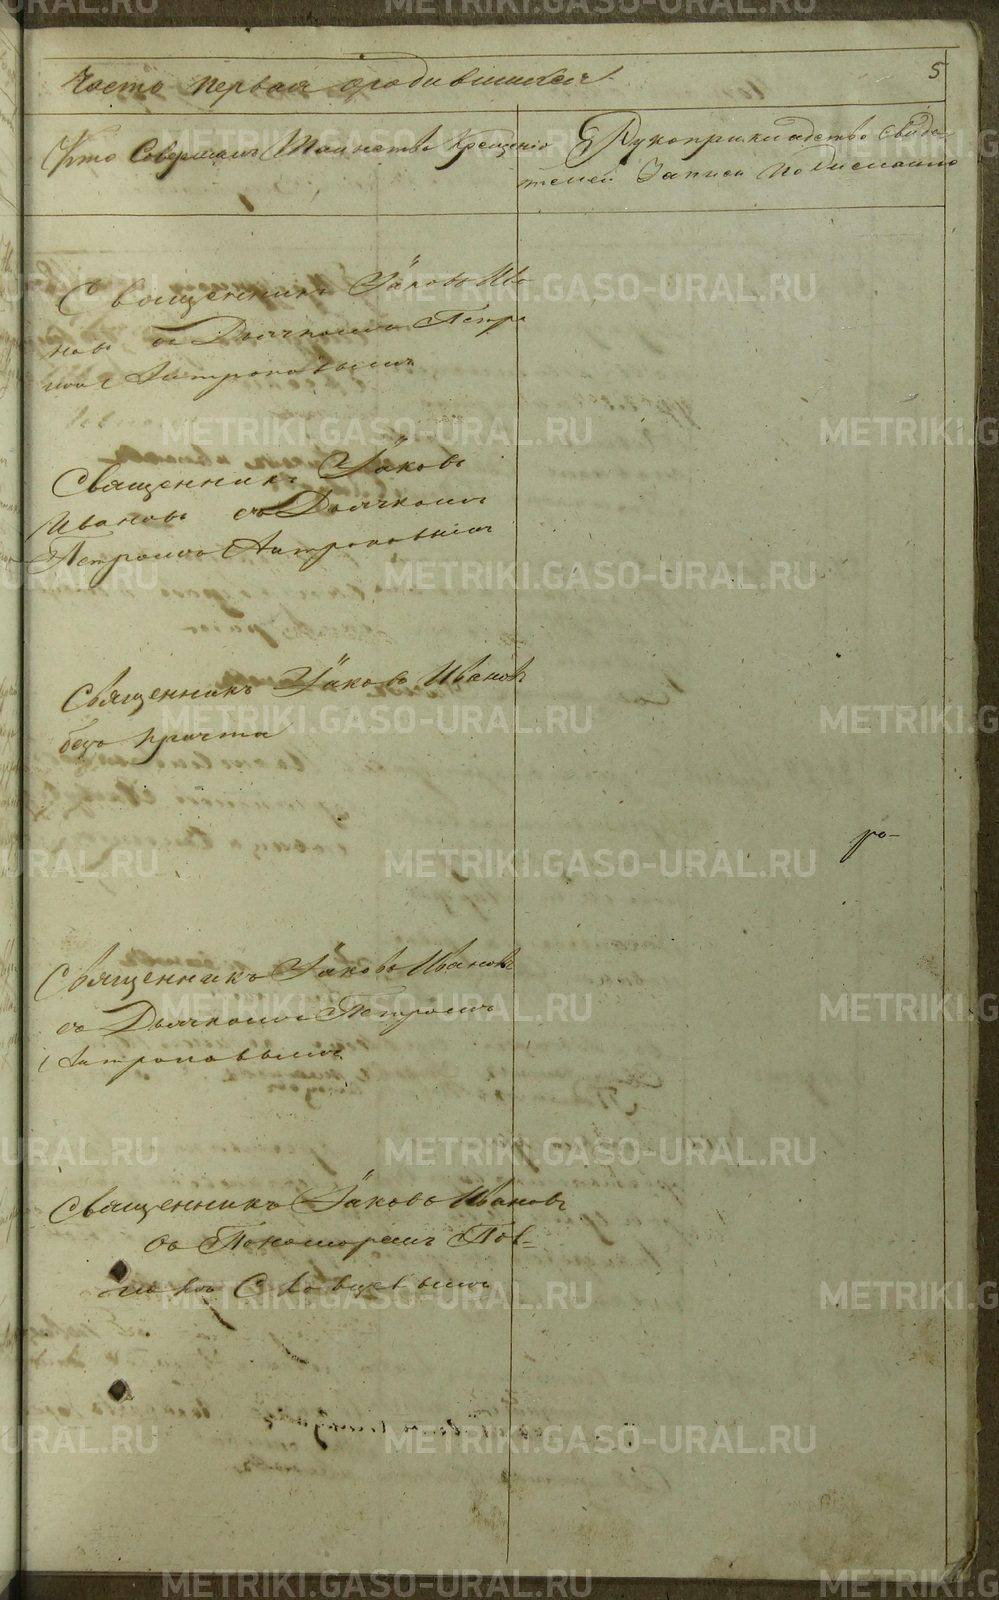 Часть первая о родившихся
5
Кто Совершалъ Таинство Крещенiя
Рукоприкладство Свиде
телей Записи по желанiю
Священникъ Iаковъ Ива
новъ съ Дьячкомъ Петро
мъ Антроповымъ
Священникъ Iаковъ
Ивановъ съ Дьячкомъ
Петромъ Антроповымъ
Священникъ Iаковъ Ивановъ
безъ причта
ро-
Священникъ Iаковъ Ивановъ
съ Дьячкомъ Петромъ
Антроповымъ
Священникъ Iаковъ Ивановъ
съ Пономаремъ
METRIKI.GASO-URAL.RU